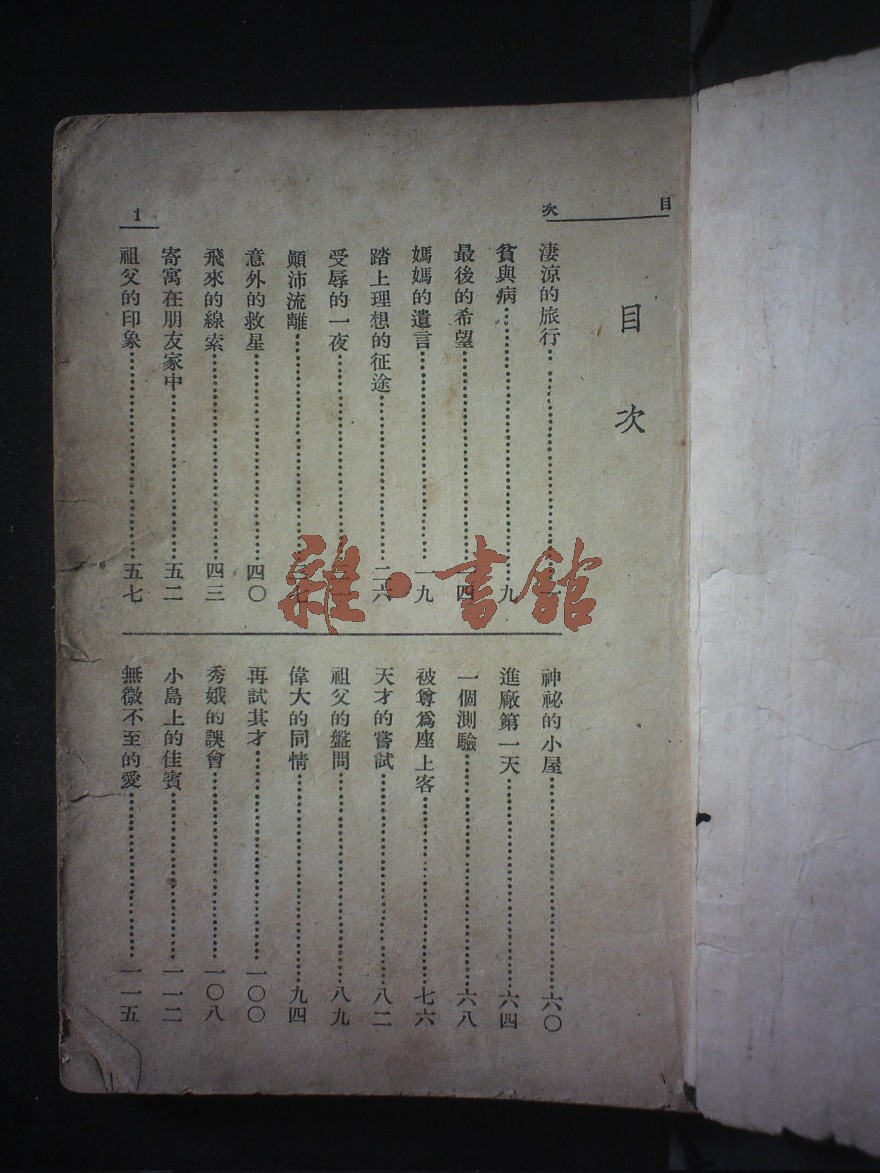 目次
目次
淒涼的旅行
貧與病……九
最後的希望……一四
媽媽的遺言……一九
踏上理想的征途……二六
受辱的一夜
顛沛流離
意外的救星……四〇
飛來的線索……四三
寄寓在朋友家中……五二
祖父的印象……五七
神祕的小屋……六〇
進廠第一天……六四
一個測驗……六八
被尊爲座上客……七六
天才的嘗試……八二
祖父的盤問……八九
偉大的同情……九四
再試其才……一〇〇
秀娥的誤會……一〇八
小島上的佳賓……一一二
無微不至的愛……一一五
1
雜·書館